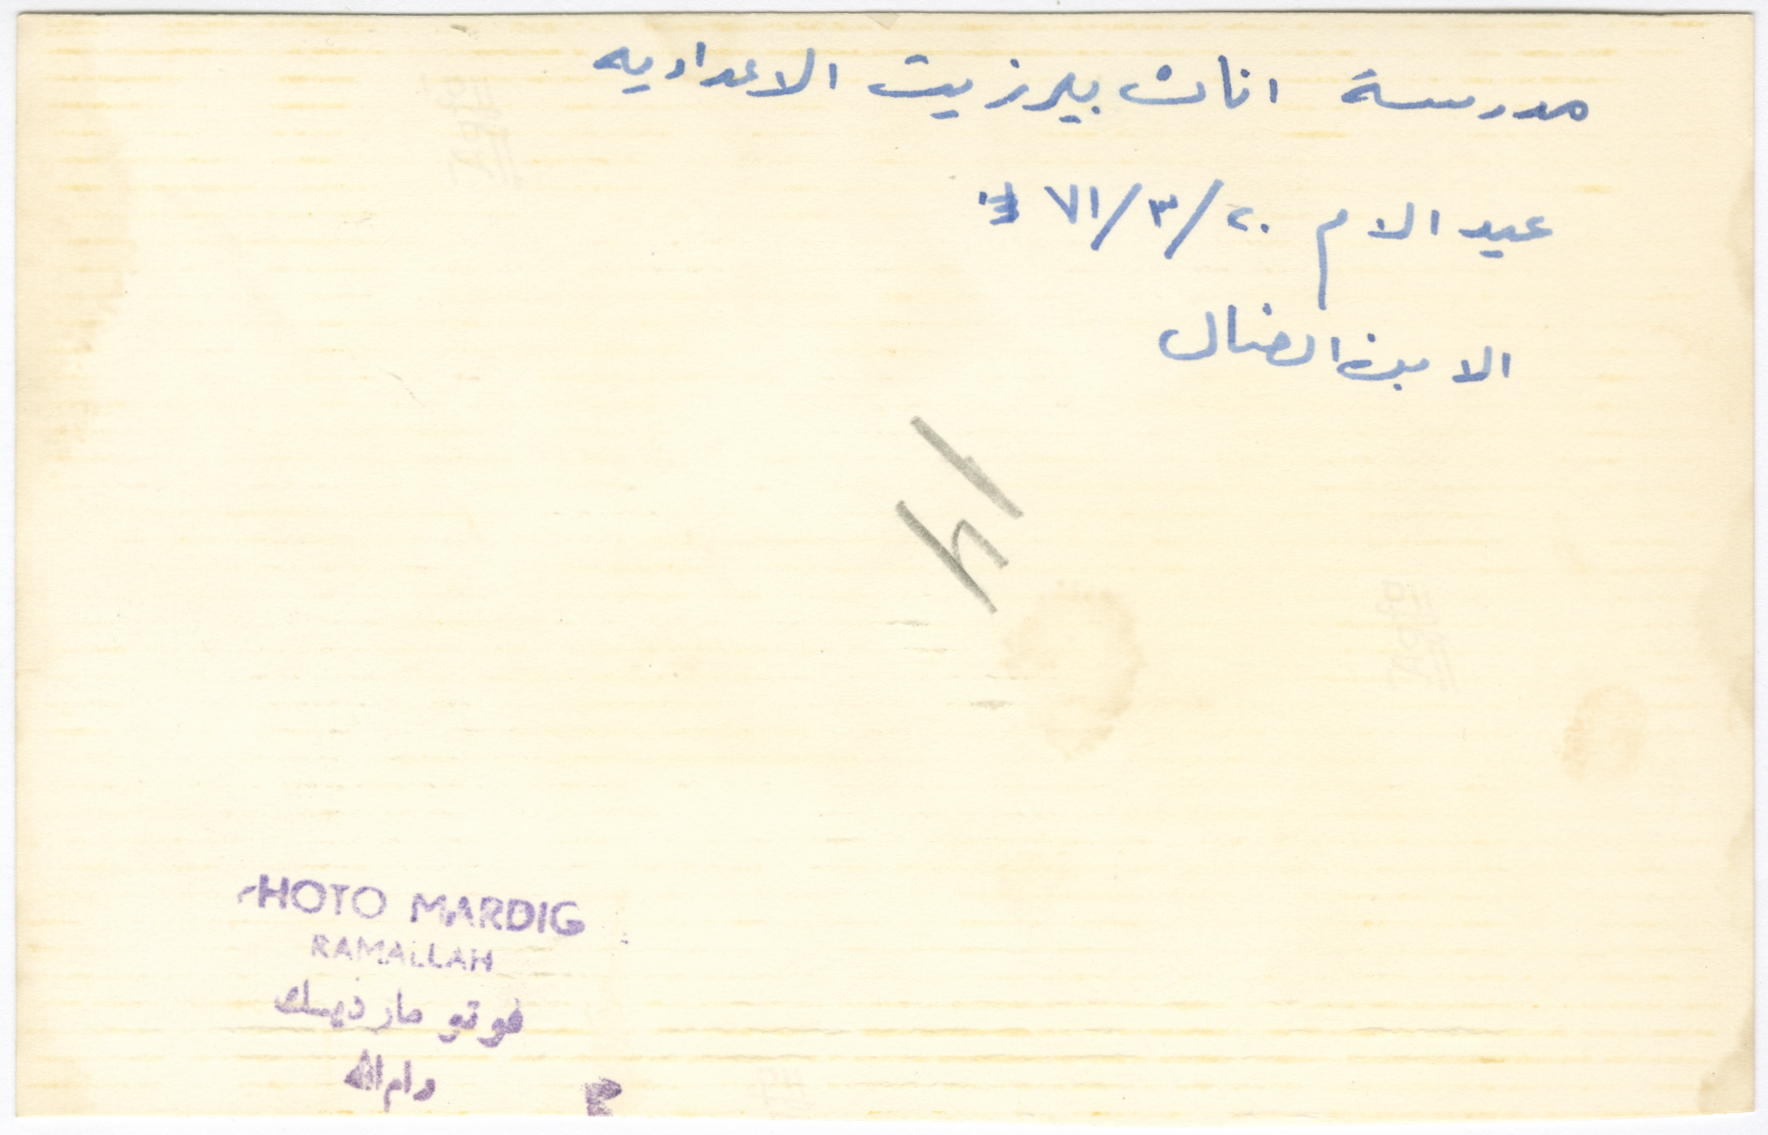 مدرسة اناث بيرزيت الاعداديه
عيد الام ٢٠/٣/٧١
الابن الضال
14
PHOTO MARDIG
RAMALLAH
فوتو مارديك
رام الله